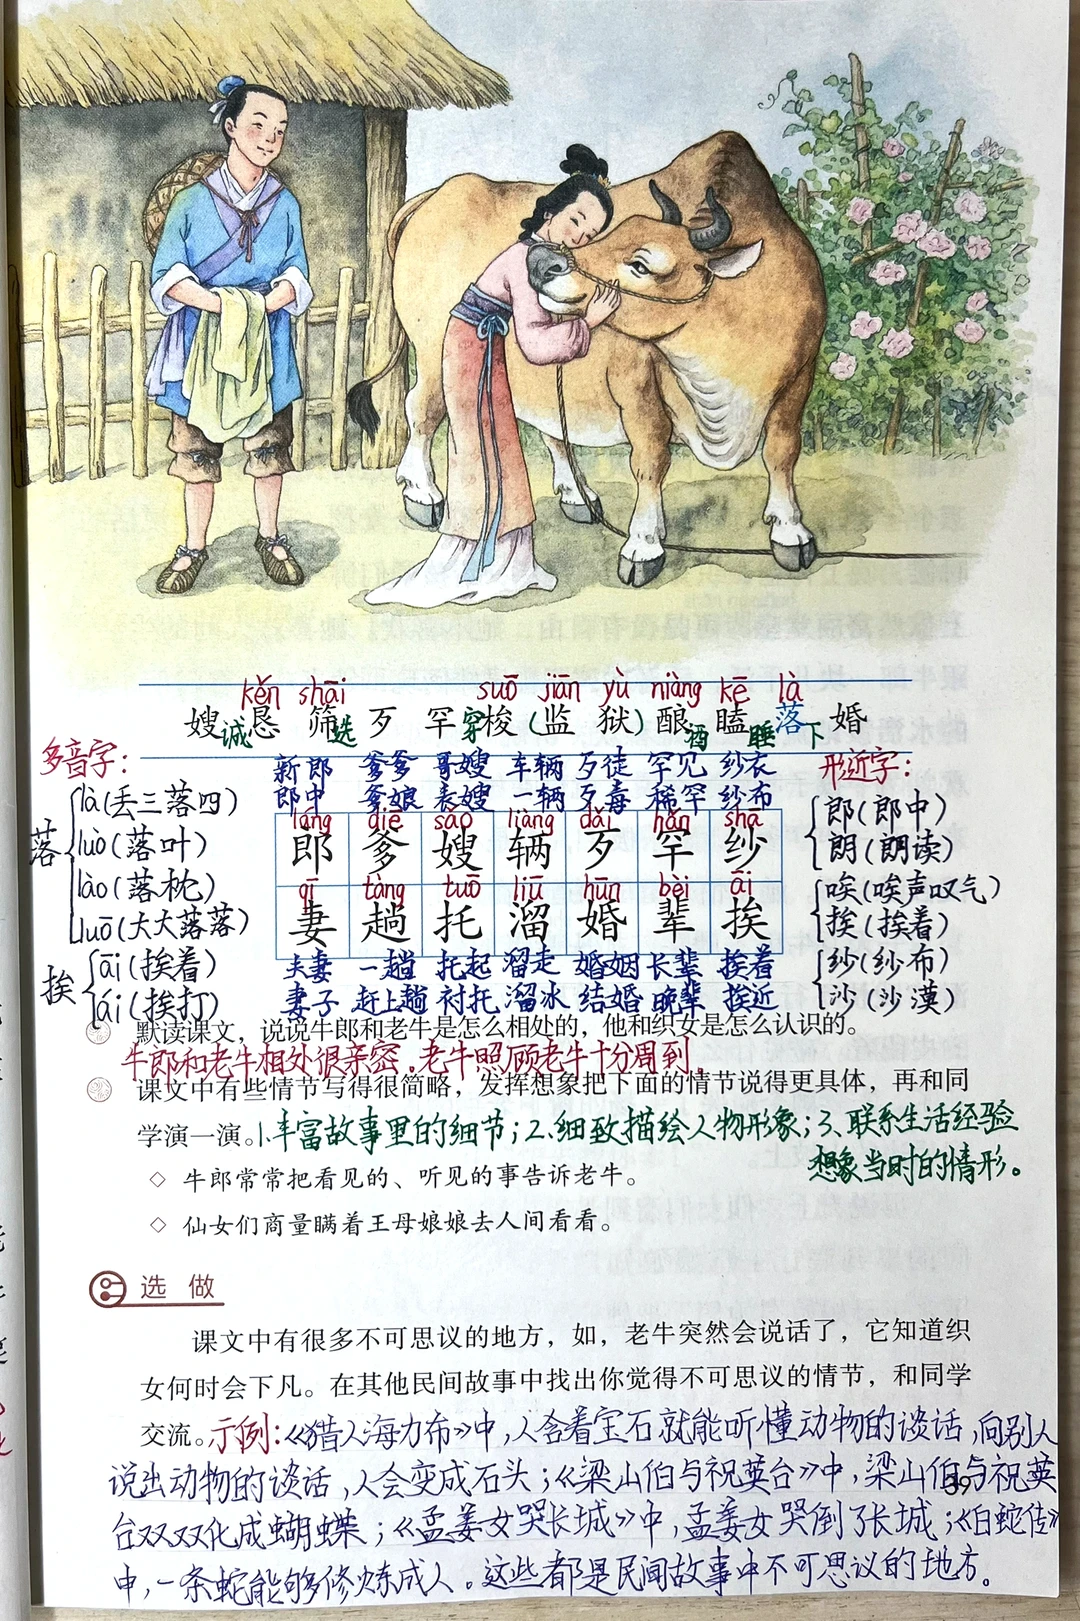 kěn shāi suō jiān yù niàng kē là
嫂 诚恳 筛选 歹 罕 穿梭 (监 狱) 酿酒 瞌睡 落下 婚
多音字:
落
là(丢三落四)
luò(落叶)
lào(落枕)
luō(大大落落)
挨
āi(挨着)
ái(挨打)
新郎 爹爹 哥嫂 车辆 歹徒 罕见 纱衣
郎中 爹娘 表嫂 一辆 歹毒 稀罕 纱布
láng diē sǎo liàng dǎi hǎn shā
郎 爹 嫂 辆 歹 罕 纱
qī tàng tuō liū hūn bèi āi
妻 趟 托 溜 婚 辈 挨
夫妻 一趟 托起 溜走 婚姻 长辈 挨着
妻子 赶上趟 衬托 溜冰 结婚 晚辈 挨近
形近字:
郎(郎中)
朗(朗读)
唉(唉声叹气)
挨(挨着)
纱(纱布)
沙(沙漠)
默读课文，说说牛郎和老牛是怎么相处的，他和织女是怎么认识的。
牛郎和老牛相处很亲密。老牛照顾老牛十分周到。
课文中有些情节写得很简略，发挥想象把下面的情节说得更具体，再和同
学演一演。1.丰富故事里的细节;2.细致描绘人物形象;3.联系生活经验
想象当时的情形。
◇ 牛郎常常把看见的、听见的事告诉老牛。
◇ 仙女们商量瞒着王母娘娘去人间看看。
选 做
课文中有很多不可思议的地方，如，老牛突然会说话了，它知道织
女何时会下凡。在其他民间故事中找出你觉得不可思议的情节，和同学
交流。示例:《猎人海力布》中,人含着宝石就能听懂动物的谈话,向别人
说出动物的谈话,人会变成石头;《梁山伯与祝英台》中,梁山伯与祝英
台双双化成蝴蝶;《孟姜女哭长城》中,孟姜女哭倒了长城;《白蛇传》
中,一条蛇能够修炼成人。这些都是民间故事中不可思议的地方。